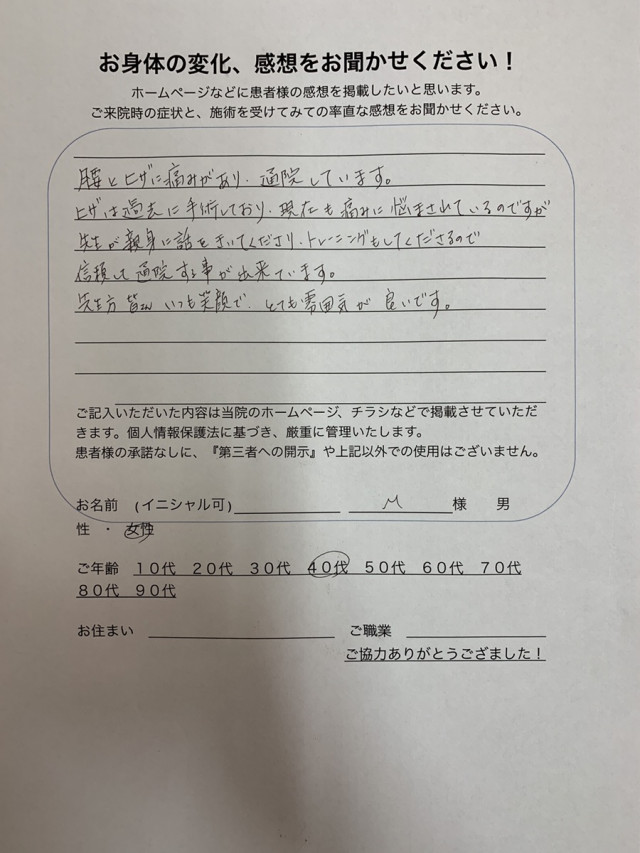 お身体の変化、感想をお聞かせください！
ホームページなどに患者様の感想を掲載したいと思います。
ご来院時の症状と、施術を受けてみての率直な感想をお聞かせください。
腰とヒザに痛みがあり、通院しています。
ヒザは過去に手術しており、現在も痛みに悩まされているのですが
先生が親身に話をきいてくださり、トレーニングもしてくださるので
信頼して通院する事が出来ています。
先生方皆さんいつも笑顔で、とても雰囲気が良いです。
ご記入いただいた内容は当院のホームページ、チラシなどで掲載させていただ
きます。個人情報保護法に基づき、厳重に管理いたします。
患者様の承諾なしに、『第三者への開示』や上記以外での使用はございません。
お名前 （イニシャル可） M 様 男
性 ・ 女性
ご年齢 １０代 ２０代 ３０代 ４０代 ５０代 ６０代 ７０代
８０代 ９０代
お住まい ご職業
ご協力ありがとうござました！